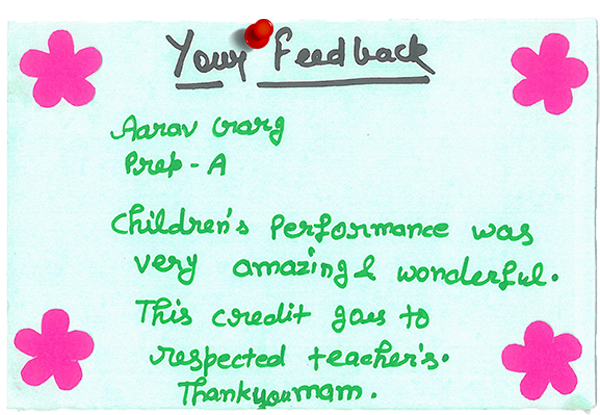 Your Feedback
Aarav Garg
Prep - A
Children's Performance was
very amazing & wonderful.
This credit goes to
respected teacher's.
Thankyou mam.